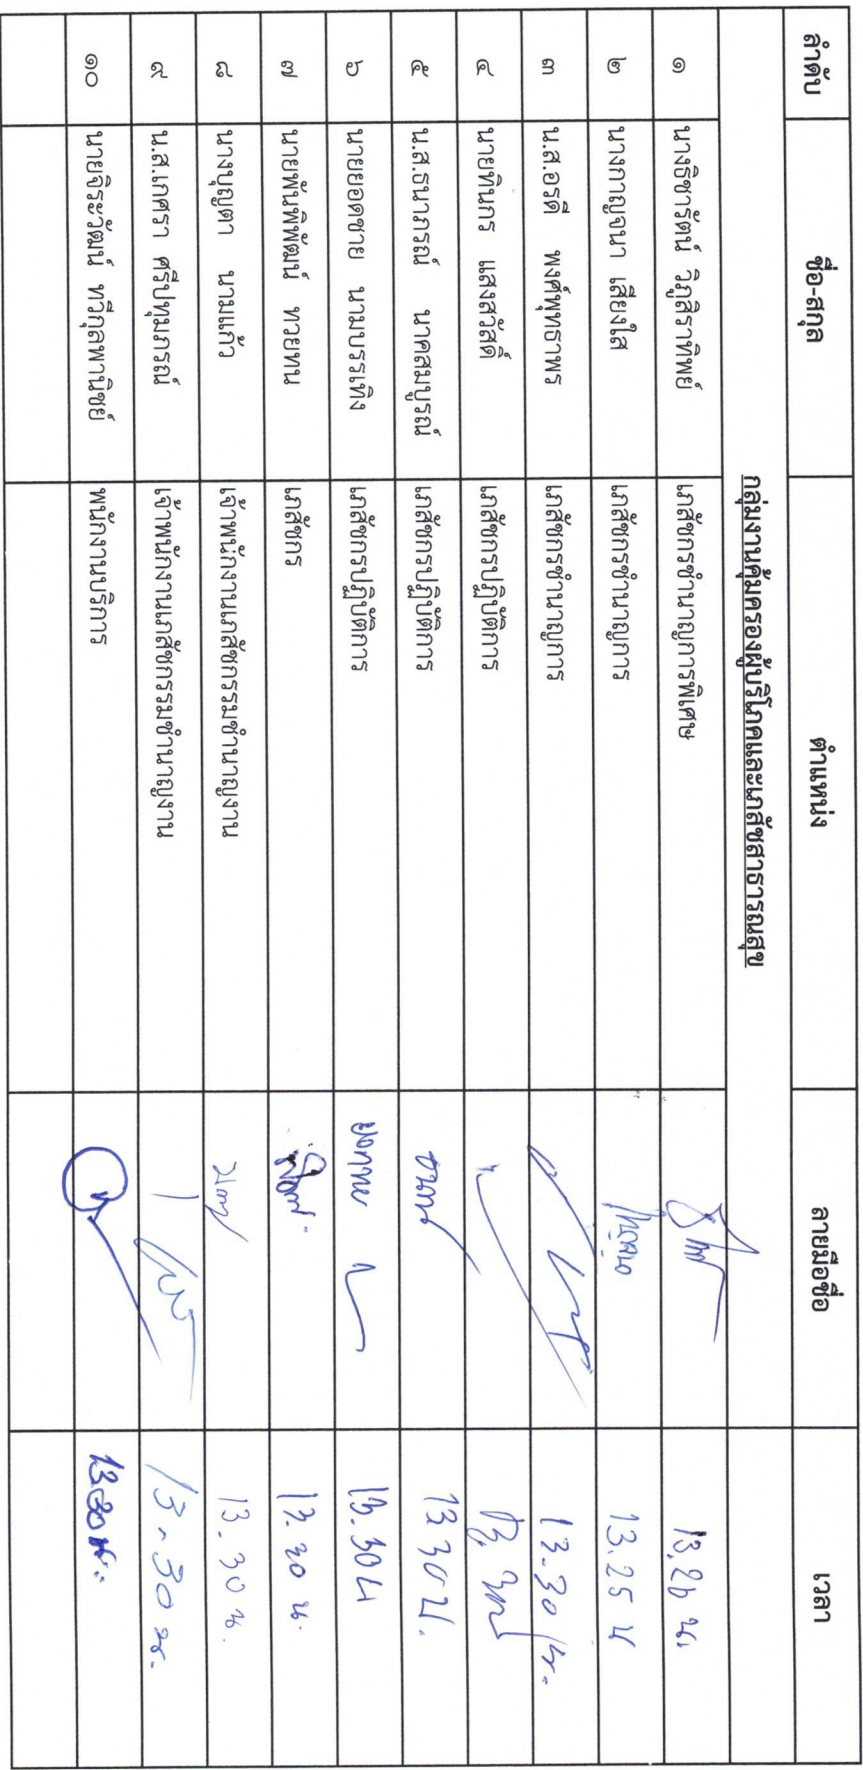 ลำดับ ชื่อ-สกุล ตำแหน่ง ลายมือชื่อ เวลา
กลุ่มงานคุ้มครองผู้บริโภคและเภสัชสาธารณสุข
๑ นางธิชารัตน์ วิภูสิราทิพย์ เภสัชกรชำนาญการพิเศษ 13.26 น.
๒ นางกาญจนา เสียงใส เภสัชกรชำนาญการ 13.25 น
๓ น.ส.อรดี พงศ์พุทธาพร เภสัชกรชำนาญการ 13.30 น.
๔ นายทินกร แสงสวัสดิ์ เภสัชกรปฏิบัติการ
๕ น.ส.ธนาภรณ์ นาคสมบูรณ์ เภสัชกรปฏิบัติการ 13 30 น.
๖ นายยอดชาย นามบรรเทิง เภสัชกรปฏิบัติการ 13.30 น
๗ นายพันพิพัฒน์ ทวยทน เภสัชกร 13.30 น.
๘ นางบุญตา นามแก้ว เจ้าพนักงานเภสัชกรรมชำนาญงาน 13.30 น.
๙ น.ส.เกศรา ศรีปทุมภรณ์ เจ้าพนักงานเภสัชกรรมชำนาญงาน 13.30 น.
๑๐ นายจิระวัฒน์ ทวีกุลพานิชย์ พนักงานบริการ 13.30 น.